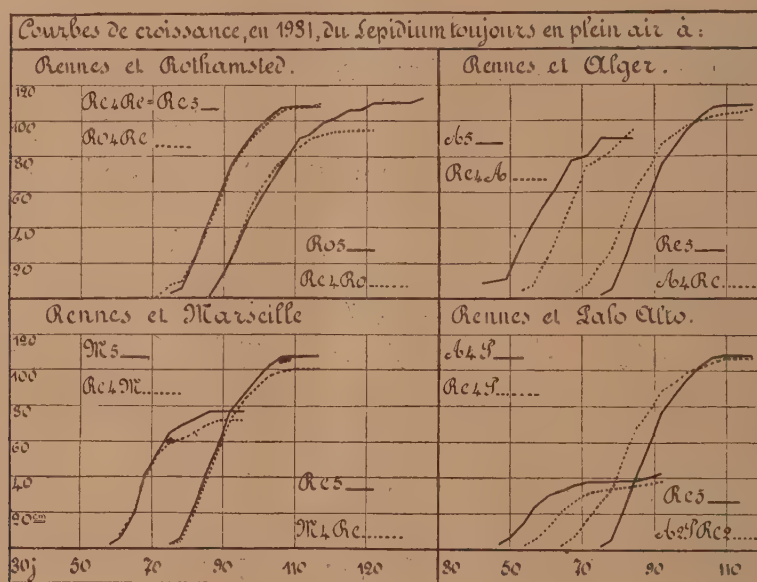 Courbes de croissance, en 1931, du Lepidium toujours en plein air à:
Rennes et Rothamsted.
120
Re4Re=Re5
100
Ro4Re
80
60
40
Ro5
20
Re4Ro
Rennes et Alger.
A5
Re4A
Re5
A4Re
Rennes et Marseille
120
M5
100
Re4M
80
60
40
Re5
20cm
M4Re
30j 50 70 90 110 120
Rennes et Palo Alto.
A4P
Re4P
Re5
A2PRe2
30 50 70 90 110